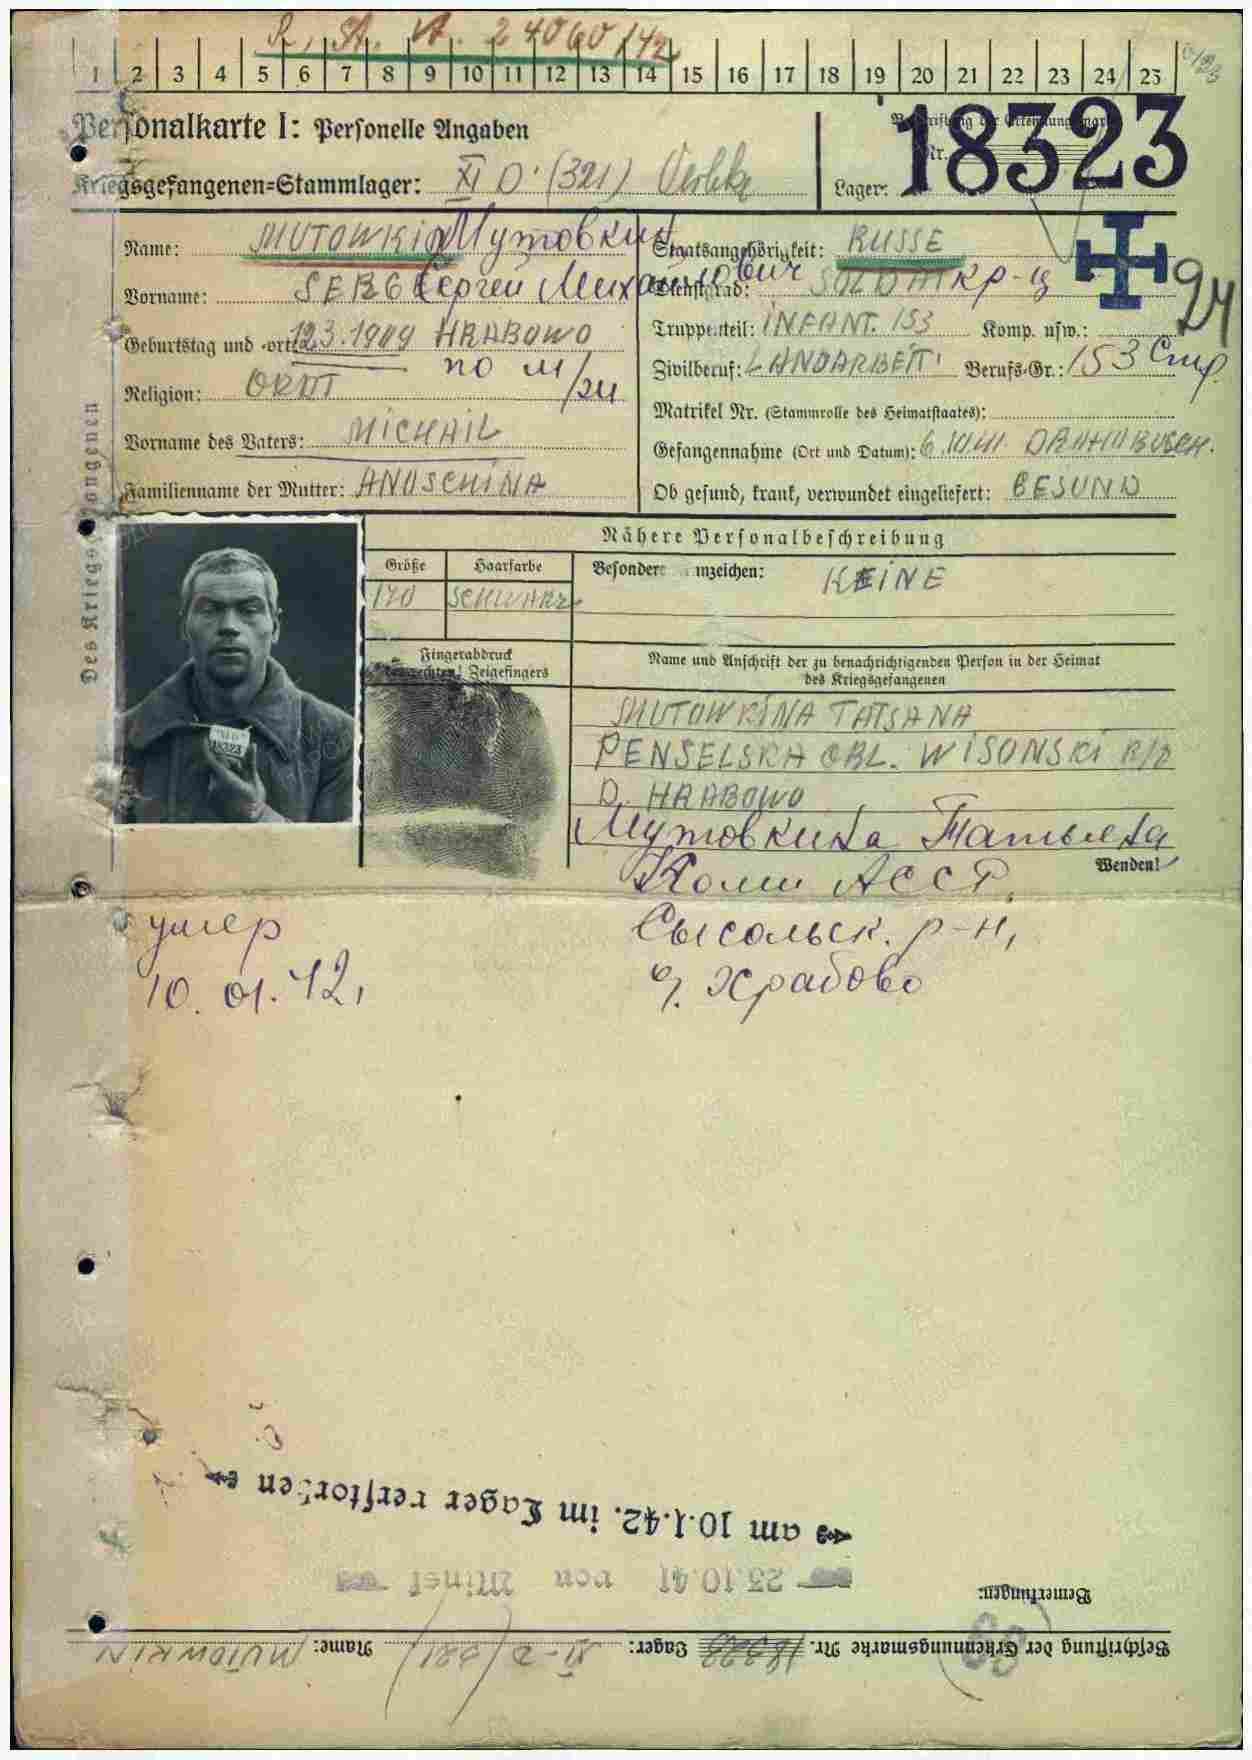 R. St. A. 24060/42
1 2 3 4 5 6 7 8 9 10 11 12 13 14 15 16 17 18 19 20 21 22 23 24 25
Personalkarte I: Personelle Angaben
Kriegsgefangenen=Stammlager: XI D (321)
Nr. 18323
Lager:
Name: MUTOWKIN Мутовкин
Vorname: Сергей Михайлович
Geburtstag und -ort: 12.3.1909 HRABOWO
по м/ж
Religion: ORDT
Vorname des Vaters: MICHAIL
Familienname der Mutter: ANUSCHINA
Staatsangehörigkeit: RUSSE
Dienstgrad: SOLDAT кр-ц
24
Truppenteil: INFANT. 153 Komp. usw.:
Zivilberuf: LANDARBEIT. Berufs=Gr.: 153 Стр.
Matrikel Nr. (Stammrolle des Heimatstaates):
Gefangennahme (Ort und Datum):
Ob gesund, krank, verwundet eingeliefert: GESUND
Des Kriegsgefangenen
18323
Nähere Personalbeschreibung
Größe Haarfarbe Besondere Kennzeichen: KEINE
170 SCHWARZ
Fingerabdruck
des rechten! Zeigefingers
Name und Anschrift der zu benachrichtigenden Person in der Heimat
des Kriegsgefangenen
MUTOWKINA TATSANA
PENSELSKA OBL. WISONSKI R/D
D. HRABOWO
Мутовкина Татьяна
Wenden!
Коми АССР,
Сысольск. р-н,
д. Храбово
умер
10.01.42,
am 10.1.42. im Lager verstorben
23.10.41 von Minsk
Bemerkungen:
Beschriftung der Erkennungsmarke Nr. 18323 Lager: XI-D (321) Name: MUTOWKIN